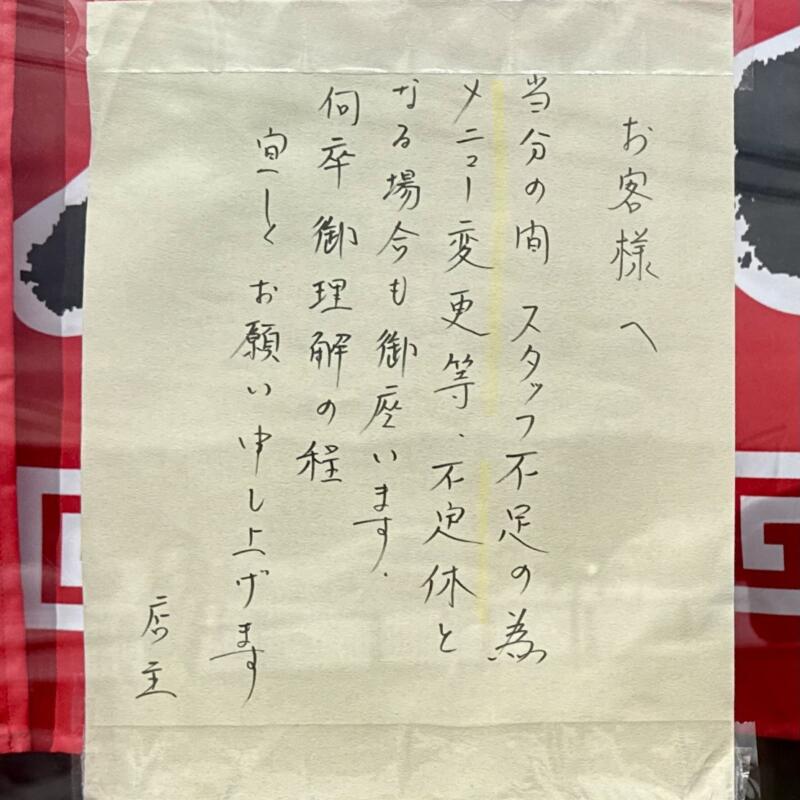 お客様へ
当分の間 スタッフ不足の為
メニュー変更等、不定休と
なる場合も御座います.
何卒御理解の程
宜しくお願い申し上げます
店主